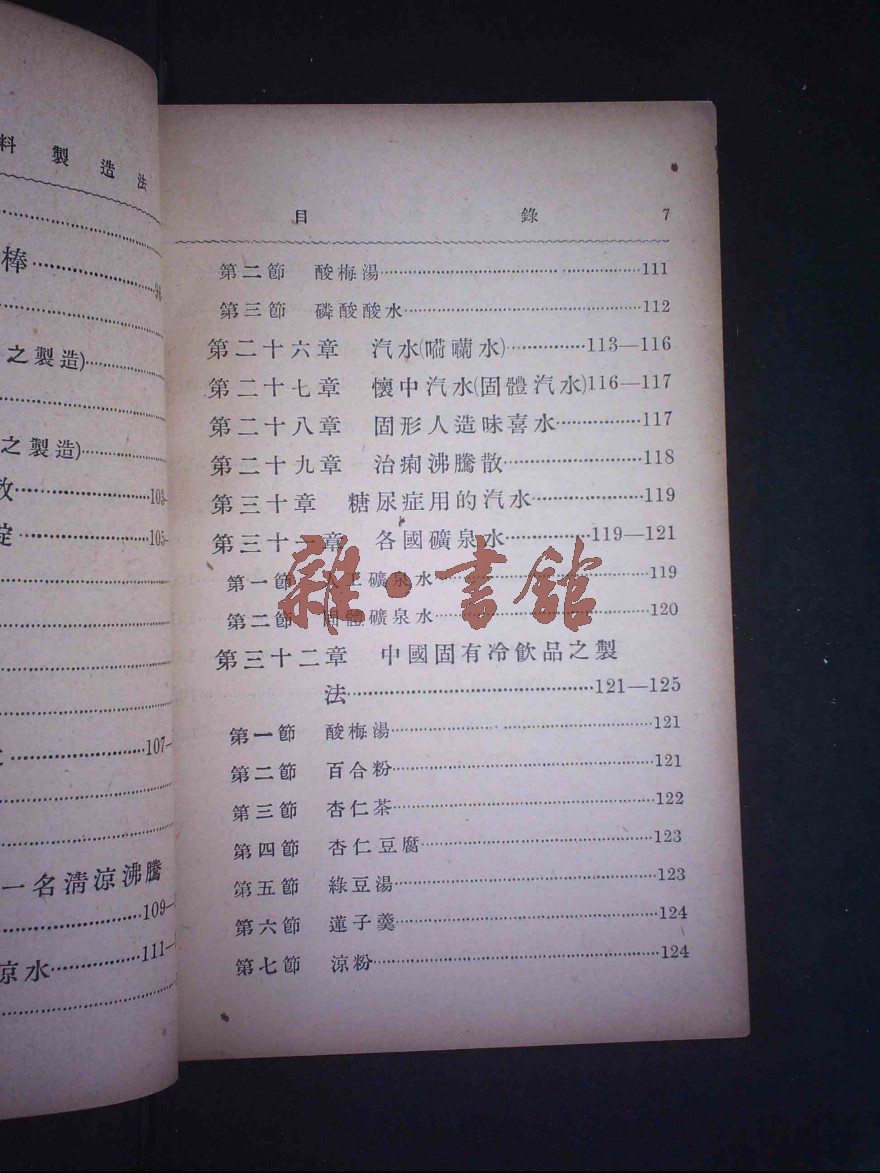 料製造法
棒……98
之製造)
之製造)
……103
錠……105
……107
一名清涼沸騰
……109
涼水……111
目錄 7
第二節 酸梅湯……111
第三節 磷酸酸水……112
第二十六章 汽水(嗬囒水)……113—116
第二十七章 懷中汽水(固體汽水)116—117
第二十八章 固形人造味喜水……117
第二十九章 治痢沸騰散……118
第三十章 糖尿症用的汽水……119
第三十一章 各國礦泉水……119—121
第一節 人工礦泉水……119
第二節 固體礦泉水……120
第三十二章 中國固有冷飲品之製
法……121—125
第一節 酸梅湯……121
第二節 百合粉……121
第三節 杏仁茶……122
第四節 杏仁豆腐……123
第五節 綠豆湯……123
第六節 蓮子羹……124
第七節 涼粉……124
雜·書館